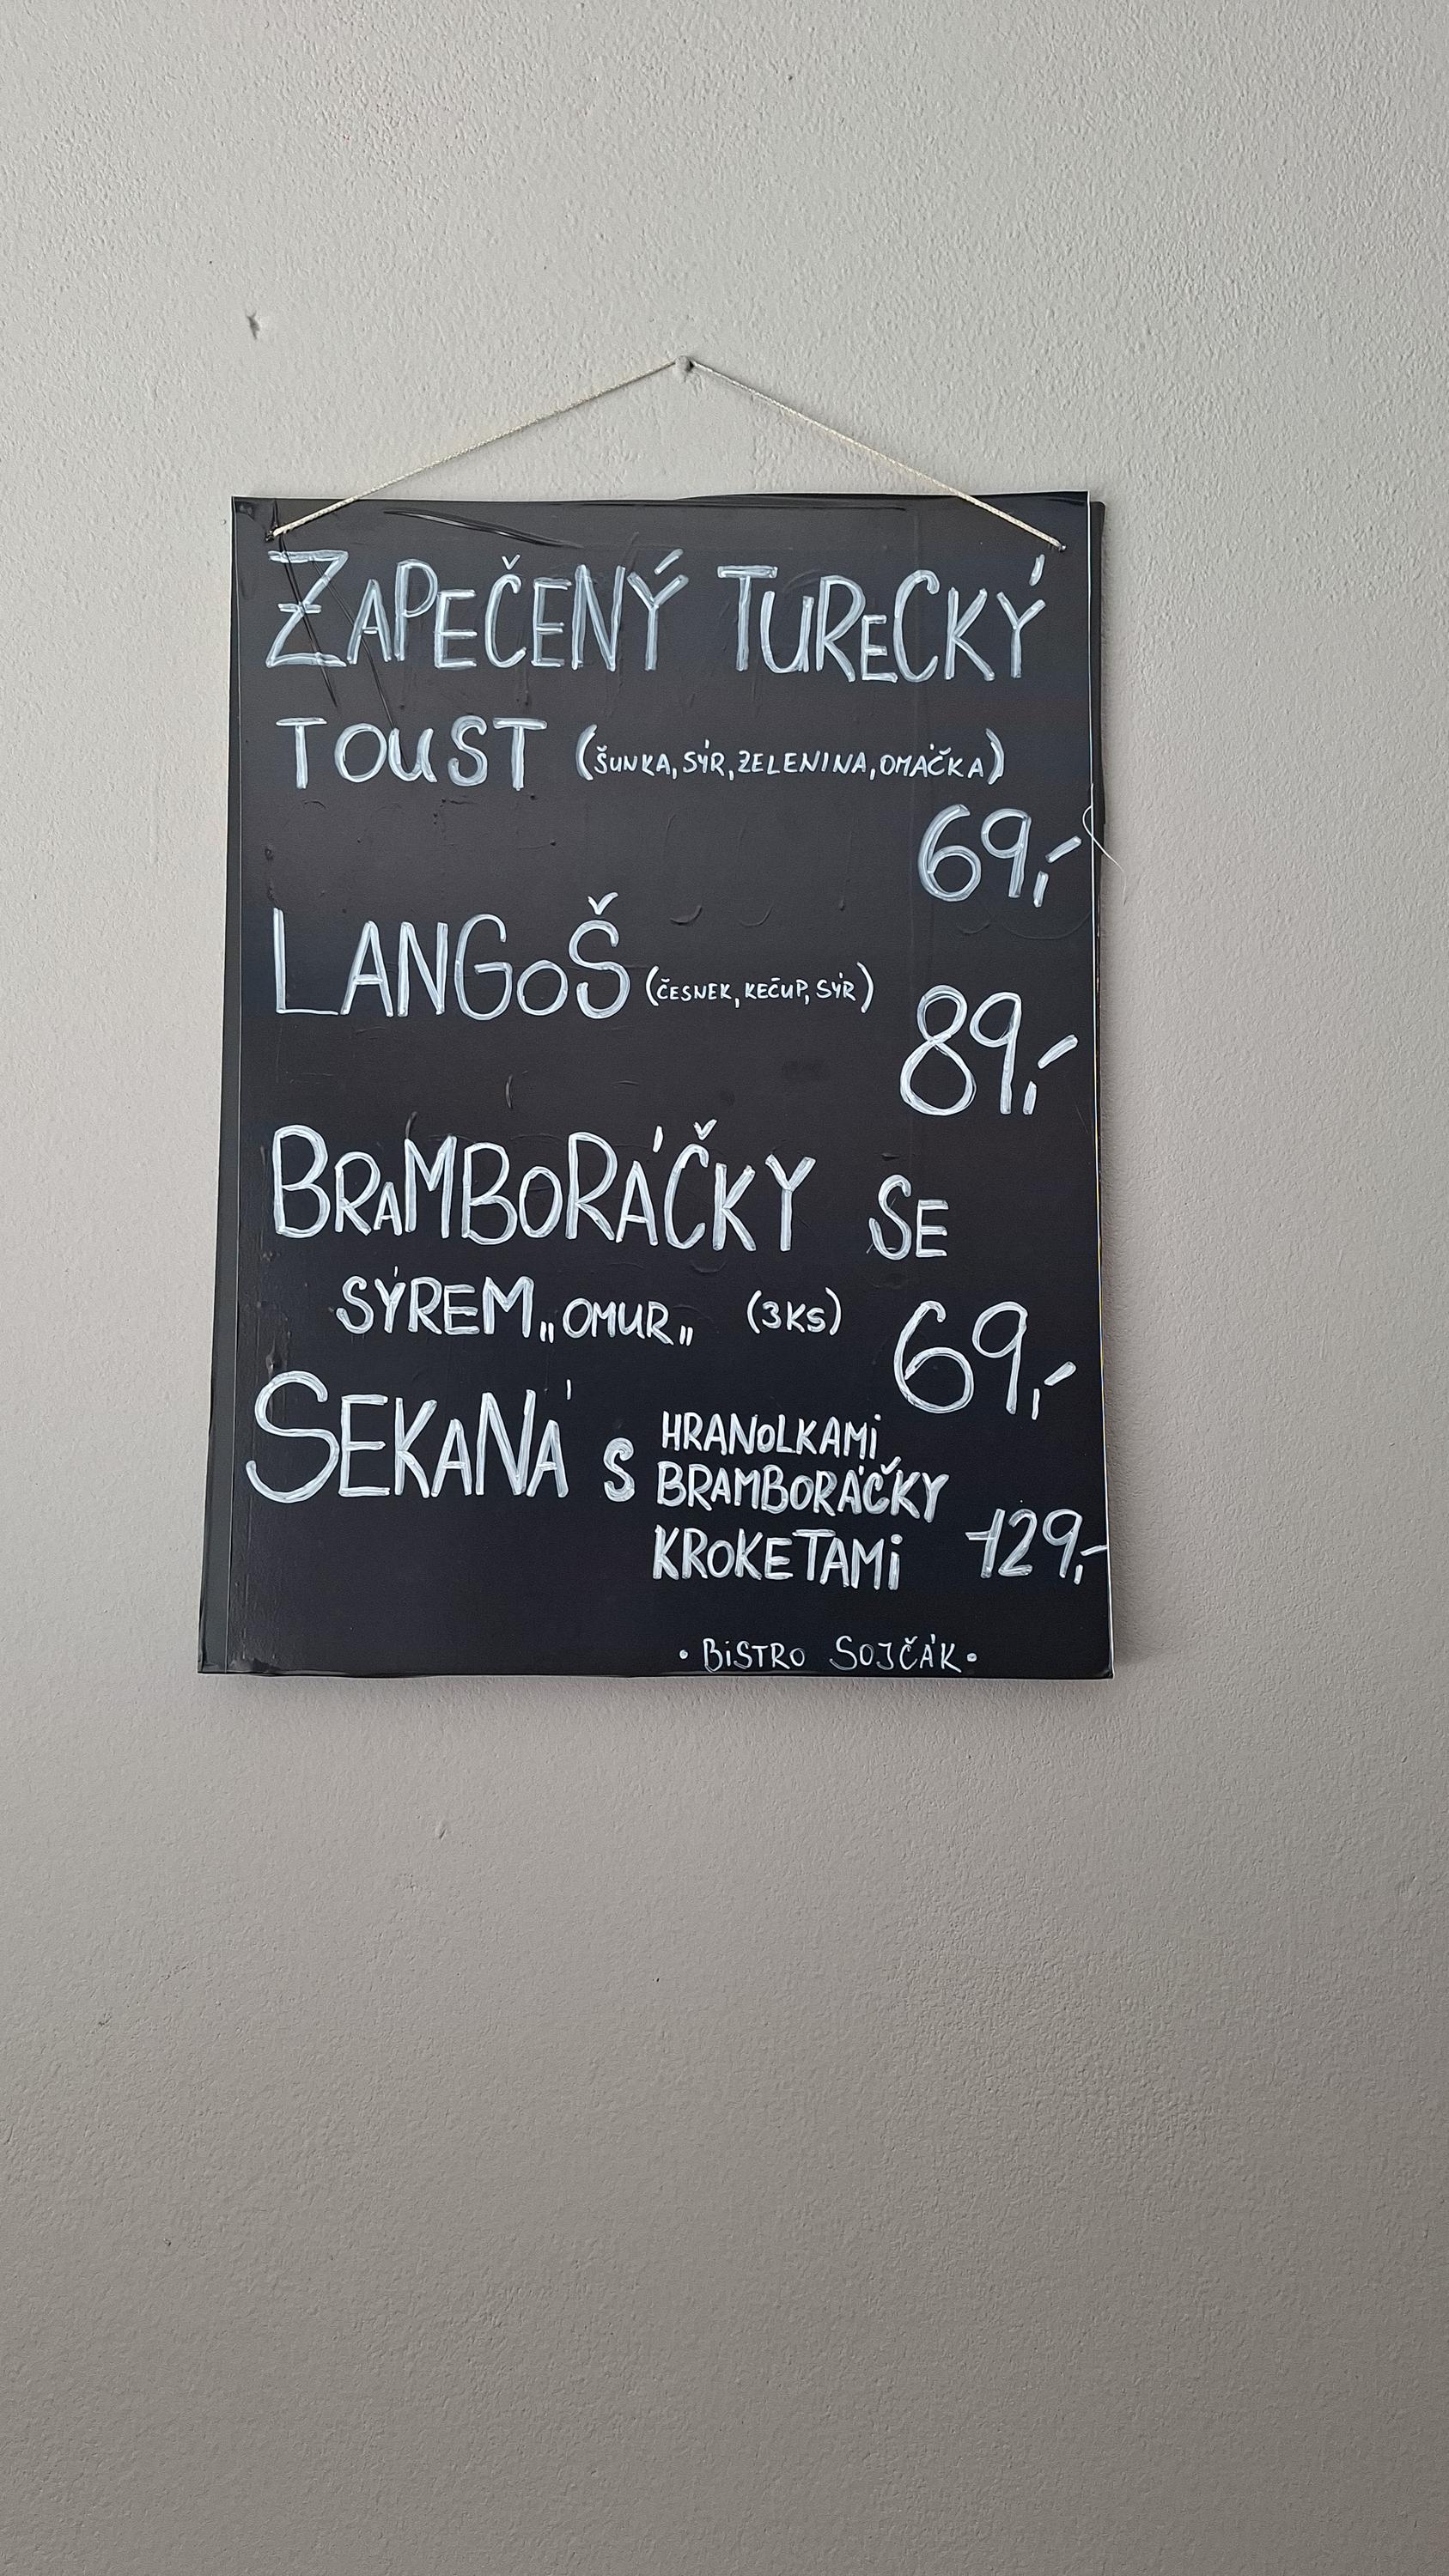 ZAPEČENÝ TURECKÝ
TOUST (ŠUNKA, SÝR, ZELENINA, OMÁČKA)
69,-
LANGOŠ (ČESNEK, KEČUP, SÝR)
89,-
BRAMBORÁČKY SE
SÝREM „OMUR„ (3KS) 69,-
SEKANÁ S HRANOLKAMI
BRAMBORÁČKY
KROKETAMI 129,-
• BISTRO SOJČÁK •